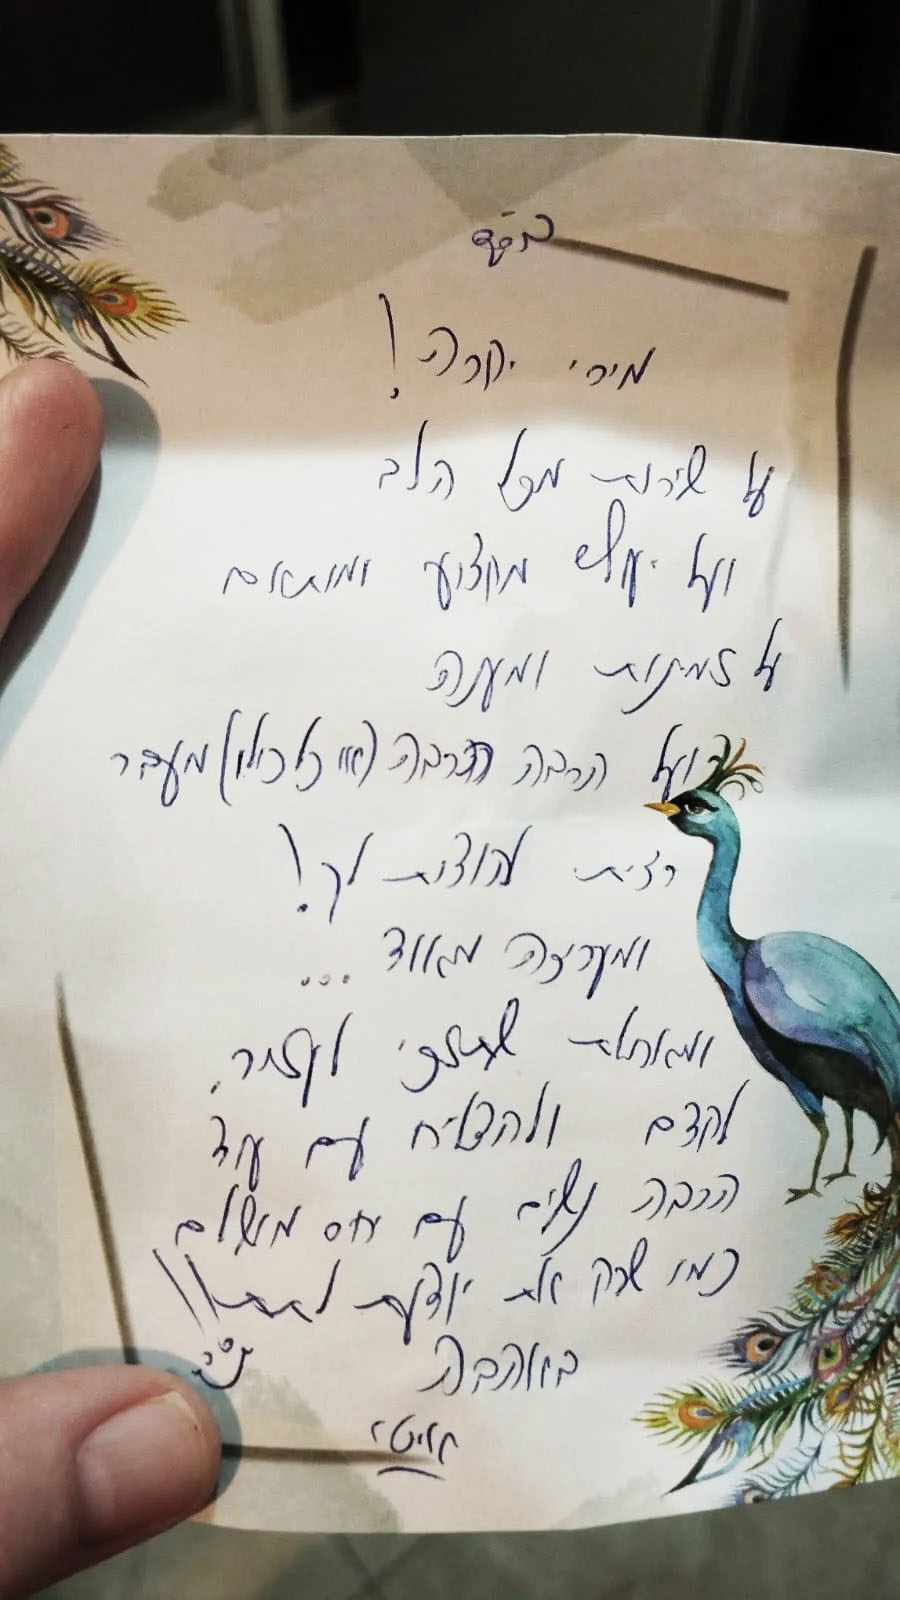 בס"ד
מירי יקרה!
על שירות מכל הלב
ועל יעוץ מקצועי ומותאם
על זמינות ומענה
ועל הרבה הרבה (או כל כולו) מעבר
רצית להודות לך!
ומעריכה מאוד...
ומאחלת שתמשיכי לעזור,
לקדם ולהצליח עם עוד
הרבה נשים עם יחס מושלם
כמו שרק את יודעת לתת!!
באהבה
אויטי